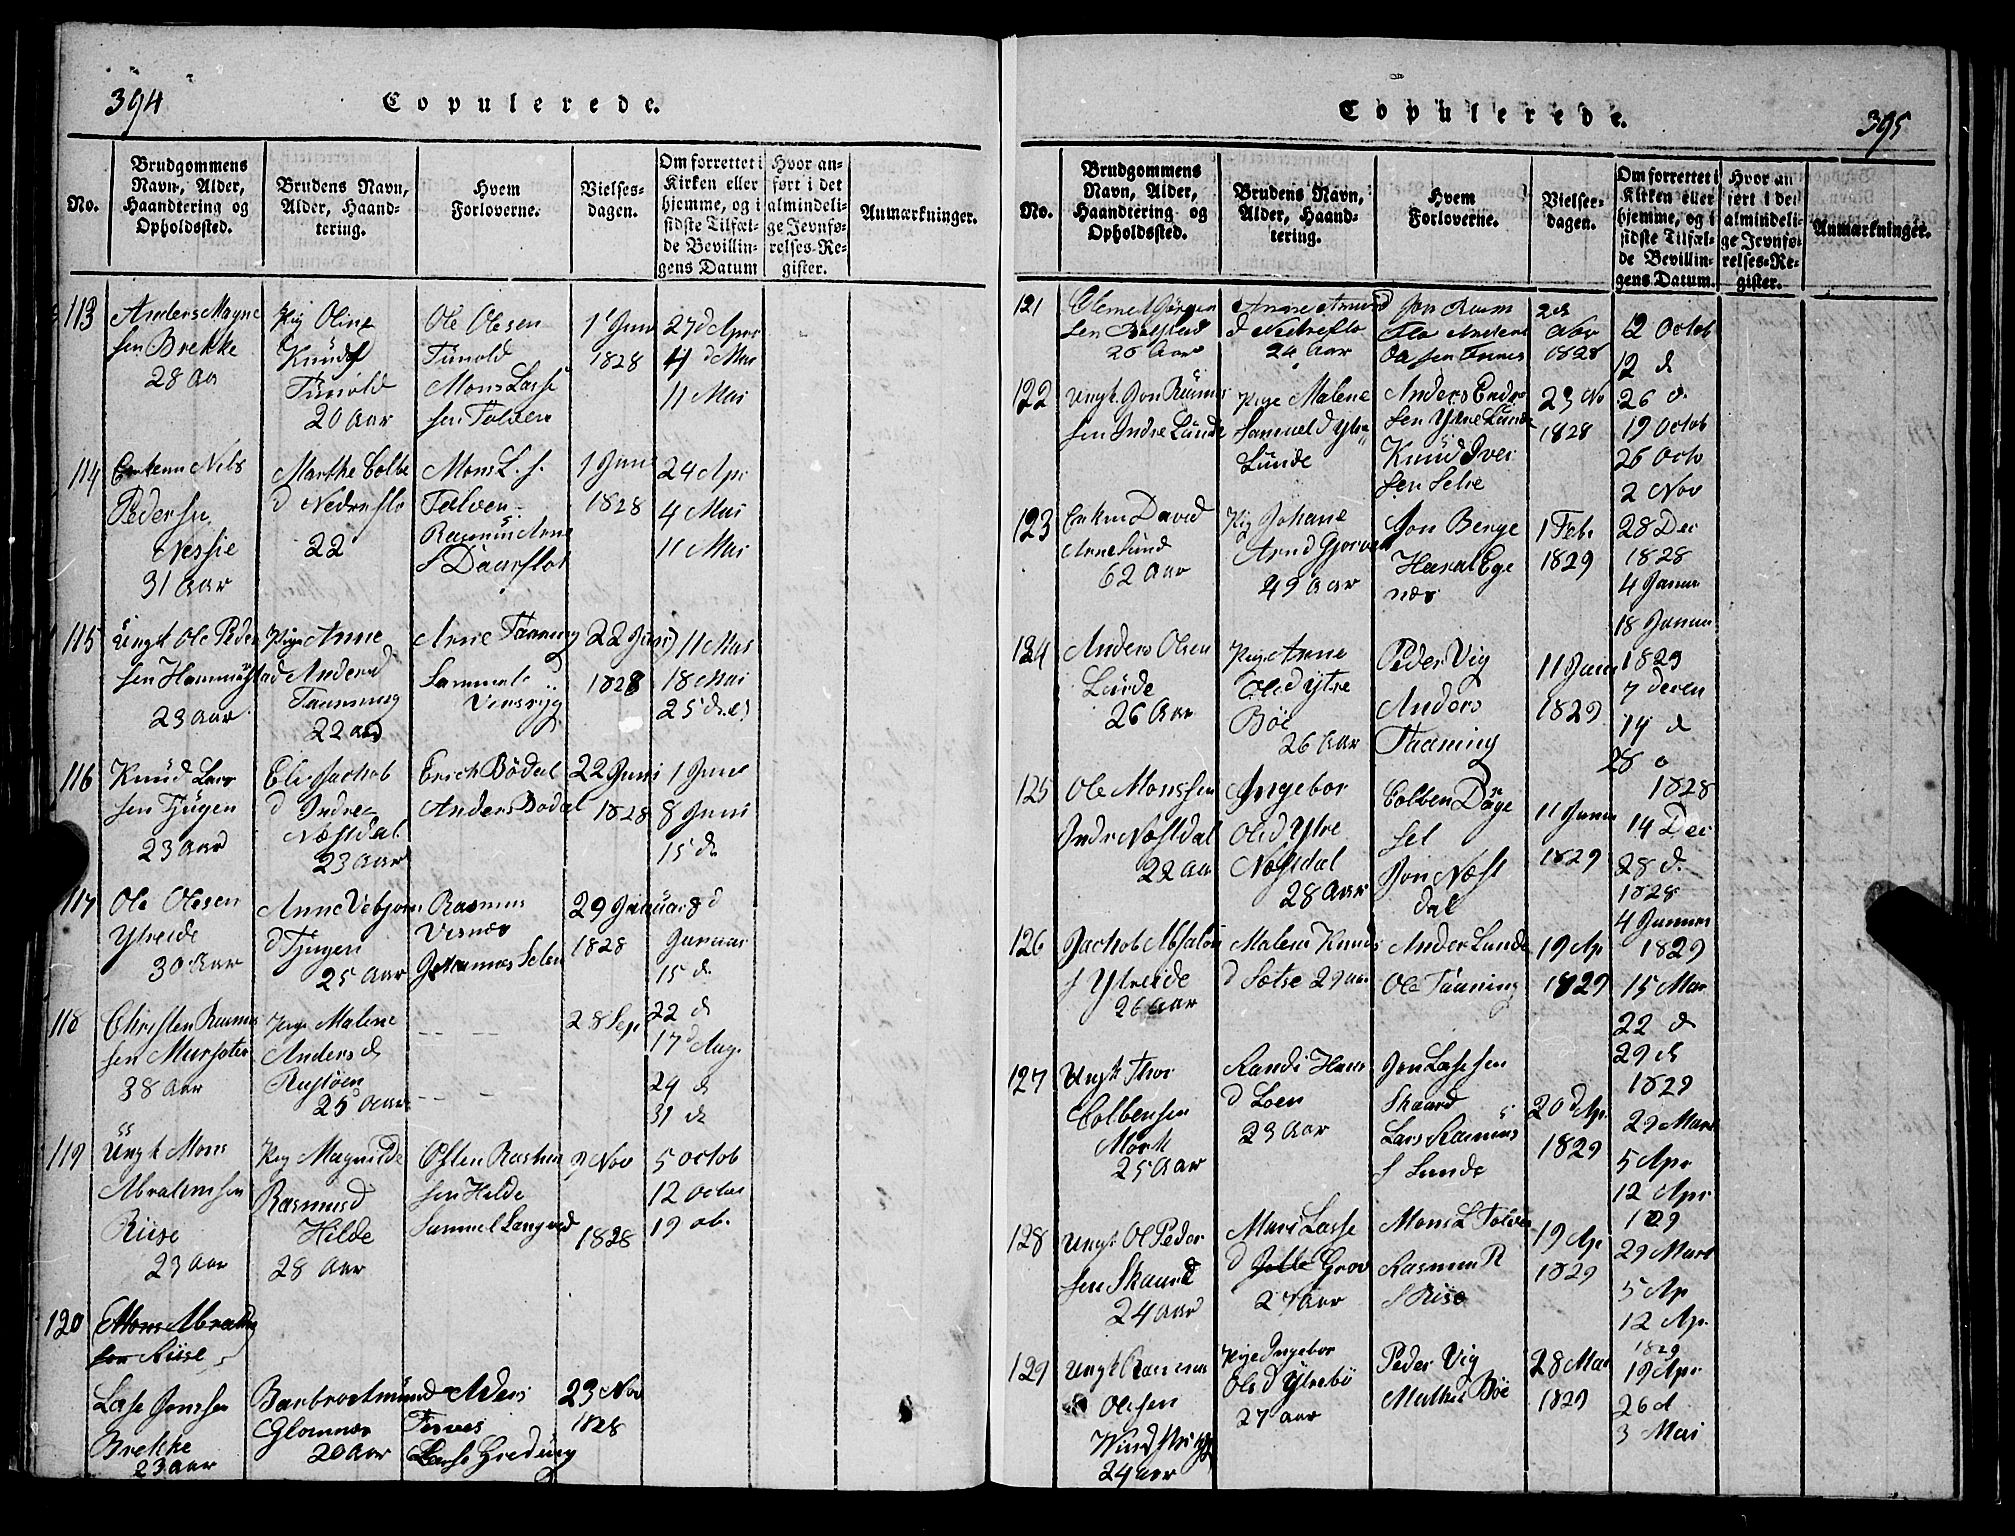 394
Copulerede.
No.
Brudgommens Navn, Alder, Haandtering og Opholdssted.
Brudens Navn, Alder, Haandtering.
Hvem Forloverne.
Vielses-dagen.
Om forrettet i Kirken eller hjemme, og i sidste Tilfælde Bevillingens Datum
Hvor anført i det almindelige Jevnførelses-Register.
Anmærkninger.
113
Anders Magne
sen Brekke
28 Aa
Pig Oline
Knuds
Tunold
20 Aar
Ole Olesen
Tunold
Mons Lasse
sen Tolven
1 Juni
1828
27 d Apr
4 d Mai
11 Mai
114
Enkem Nils
Pedersen
Nessie
31 Aar
Marthe Colbe
d Nedreflo
22
Mons L. s.
Tolven
Rasmus Arne
s Daarflot
1 Juni
1828
24 Apr
4 Mai
11 Mai
115
Ungk Ole Peder
sen Hammerstad
23 Aar
Pige Anne
Andersd
Taaning
22 Aar
Arne Taaning
Sammel
22 Juni
1828
11 Mai
18 Mai
25 d
116
Knud Lars
sen Tjugen
23 Aar
Eli Jachob
d Indre
Næstdal
23 Aar
Erich Bödal
Anders Bodal
22 Juni
1828
1 Juni
8 Juni
15 d
117
Ole Olesen
Ytreide
30 Aar
Anne Vebjorn
d Tjugen
25 Aar
Rasmus
Visnes
Johannes Selen
29 Januar
1828
8 d
Januar
15 d
22 d
118
Christen Rasmus
sen
38 Aar
Pige Malene
Anders d
Rustøen
25 Aar
28 Sep
17 d Aug.
24 d
31 d
119
Ungk Mons
Abrahmsen
Riise
23 Aar
Pig Magnilde
Rasmusd
Hilde
28 Aar
Osten Rasmus
sen Hilde
Sammel Langved
9 Nov
1828
5 Octob
12 Octob
19 ob.
120
Mons Abrahm
sen Riise
Lasse Jonssen
Brekke
23 Aar
Barbro Amund
Glomnes
20 Aar
Anders
Tenves
Lasse Hreding
23 Nov
1828
395
Copulerede.
No.
Brudgommens Navn, Alder, Haandtering og Opholdssted.
Brudens Navn, Alder, Haandtering.
Hvem Forloverne.
Vielses-dagen.
Om forrettet i Kirken eller hjemme, og i sidste Tilfælde Bevillingens Datum.
Hvor anført i det almindelige Jevnførelses-Register.
Anmærkninger.
121
Clemet Jørgen
sen
26 Aar
Anne Arnes
d Nedreflo
24 Aar
Jon Rasm
Flo Anders
Nov
1828
12 Octob
12 d
26 d
122
Ungk. Jon Rasmus
sen Indre Lunde
Pige Malene
Samuel d Ytre
Lunde
Anders Enders
sen Ytre Lunde
Knud Iver
sen Selse
23 No
1828
19 Octob
26 Octo
2 Nov
123
Enkem David
Arnesund
62 Aar
Pig Johane
Arnd Gjorven
49 Aar
Jon Berge
Haral Ege
næs
1 Feb.
1829
28 Dec
1828
4 Janua
18 Janua
1829
124
Anders Olsen
Lunde
26 Aar
Pige Anne
Ole d Ytre
Böe
26 Aar
Peder Vig
Anders
Taaning
11 Janu
1829
7 decen
14 d
28 o
1828
125
Ole Monssen
Indre Næstdal
22 Aar
Ingebor
Oled Ytre
Næstdal
28 Aar
Colben
Jon Næst
dal
11 Janu
1829
14 Dec
28 d.
1828
4 Januar
1829
126
Jachob Absalon
s Ytreide
26 Aar
Malene Knuds
d Sætre 29 aar
Ander Lunde
Ole Taaning
19 Ap
1829
15 Mar
22 d
29 d
1829
127
Ungk Thor
Colbensen
Mork
25 Aar
Randi Hans
d Loen
23 Aar
Jon Lassesen
Skaard
Lars Rasmus
s Lunde
20 d Ap.
1829
29 Mars
5 Apr
12 Apr
1829
128
Ungk Ol Peder
sen Skaard
24 Aar
Mari Lasse
d Grov
27 Aar
Mons L Tolven
Rasmus R
s Riise
19 Ap
1829
29 Mars
5 Ap
12 Ap.
1829
129
Ungk Rasmus
Olesen
24 Aar
Pige Ingebor
Ols d Ytrebö
27 Aar
Peder Vig
Mathis Böe
28 Mai
1829
19 Apr
26 d
3 Mai